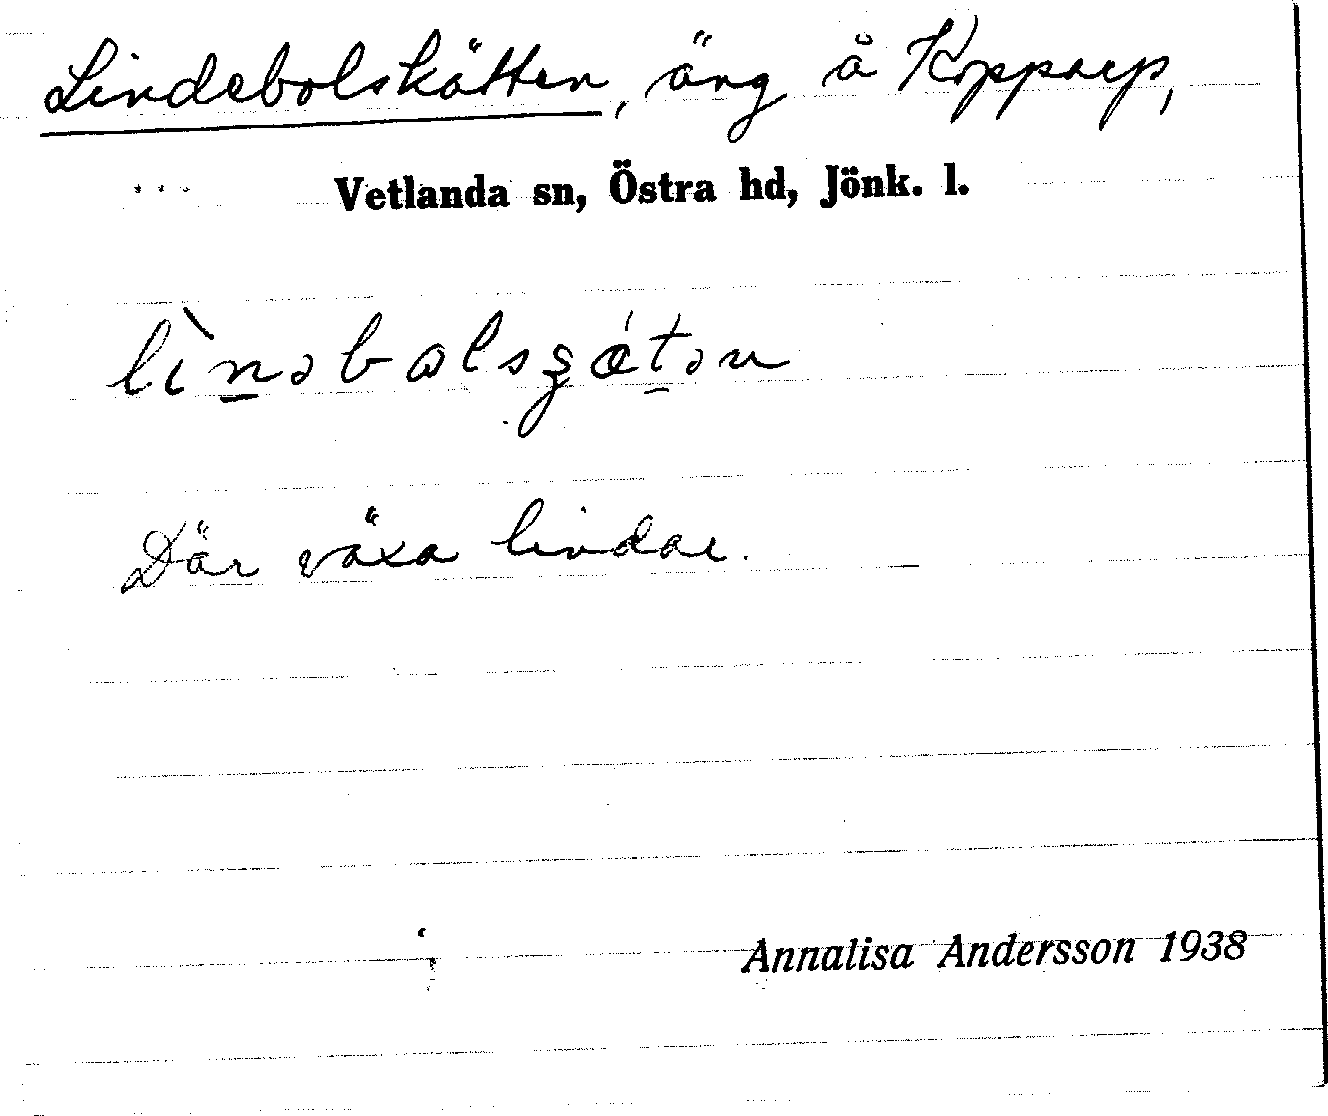 Lindebolskätten, äng å Kopparp,
Vetlanda sn, Östra hd, Jönk. l.
Där växa lindar.
Annalisa Andersson 1938